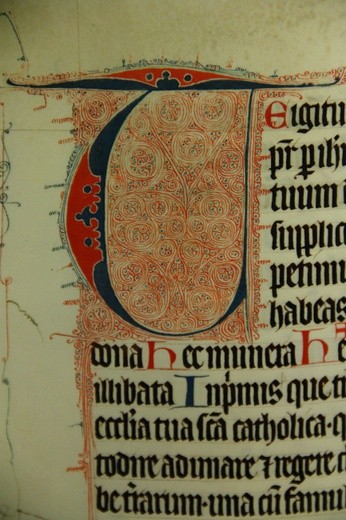 T Eigitu
pr̃ p ih̃
tuum
supplic
petimu
habeas
dona hec munera h
illibata Inp̃mis que
eccl̃ia tua sc̃a catholica·q
todire adunare ⁊ regere
be t̃rarum·una cũ famul